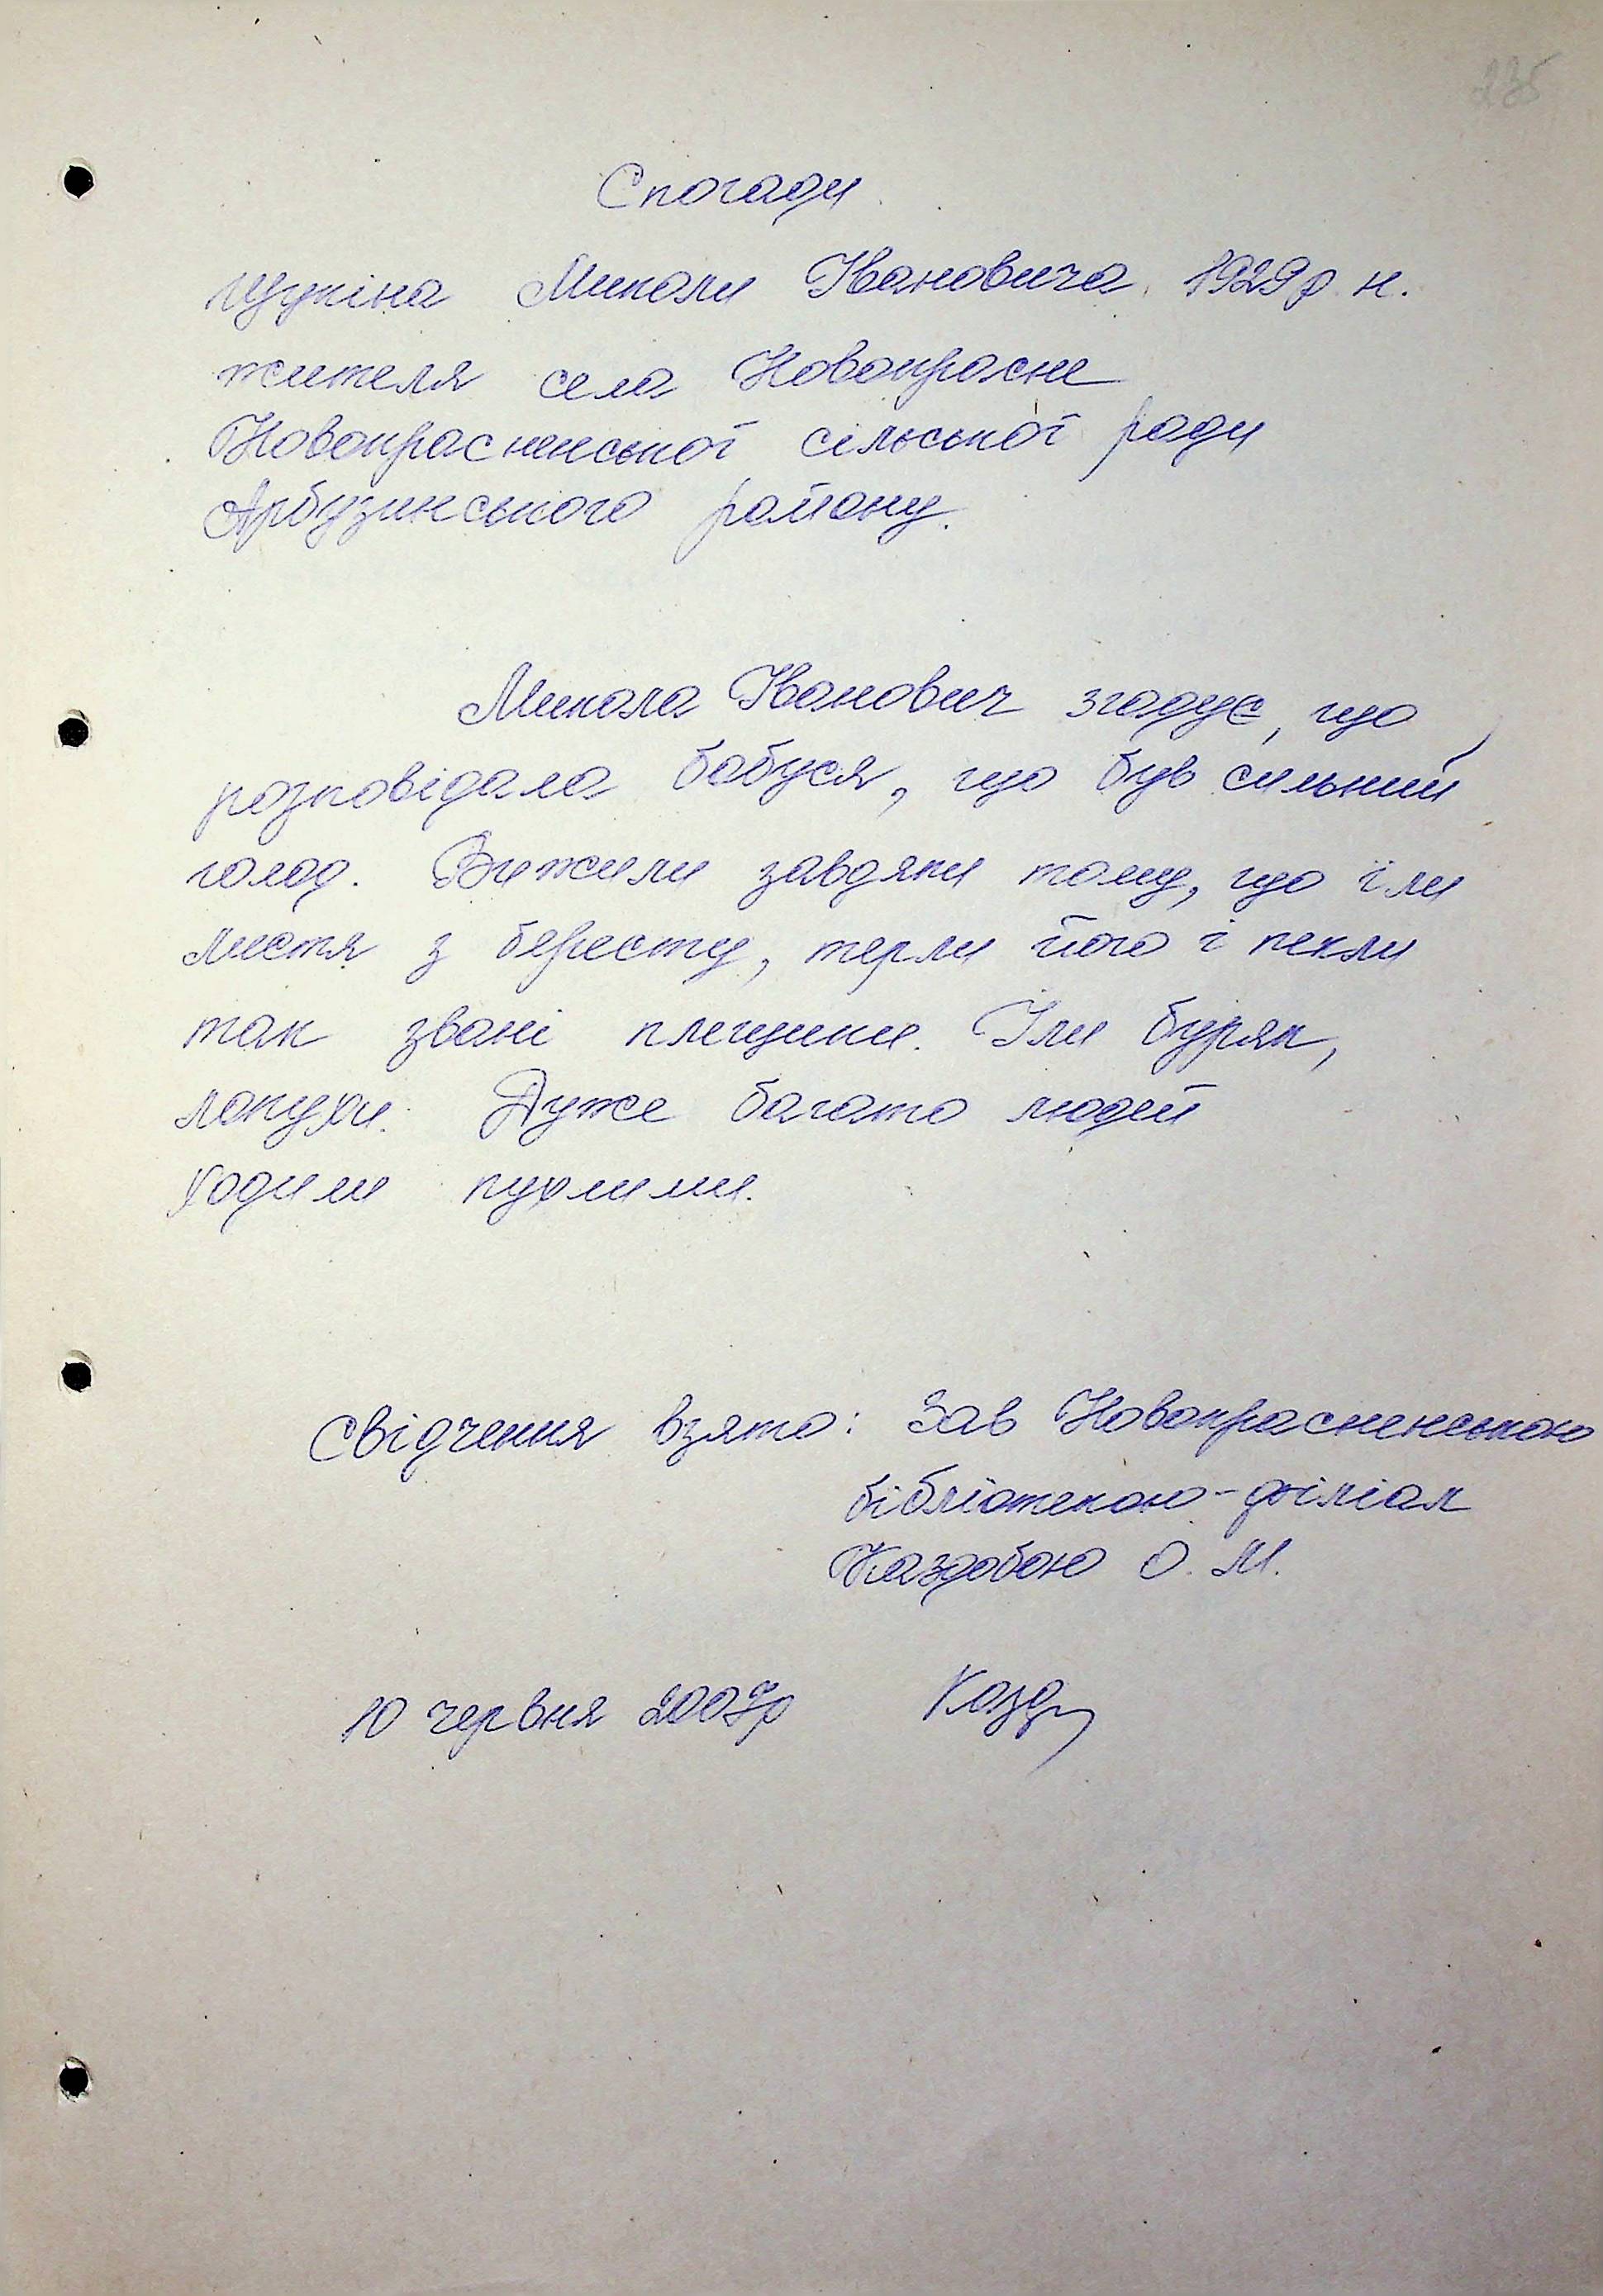 235
Спогади
Щукіна Миколи Івановича 1929 р. н.
жителя села Новокрасне
Новокрасненської сільської ради
Арбузинського району.
Микола Іванович згадує, що
розповідала бабуся, що був сильний
голод. Вижили завдяки тому, що їли
листя з бересту, терли його і пекли
так звані плещики. Їли буряк,
лопухи. Дуже багато людей
ходили пухлими.
Свідчення взято: Зав Новокрасненською
бібліотекою-філіал
Каздобою О. М.
10 червня 2007р